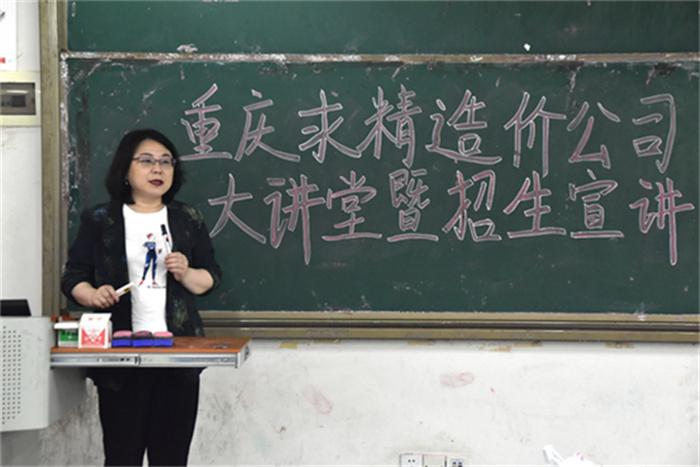 重庆求精造价公司
大讲堂暨招生宣讲